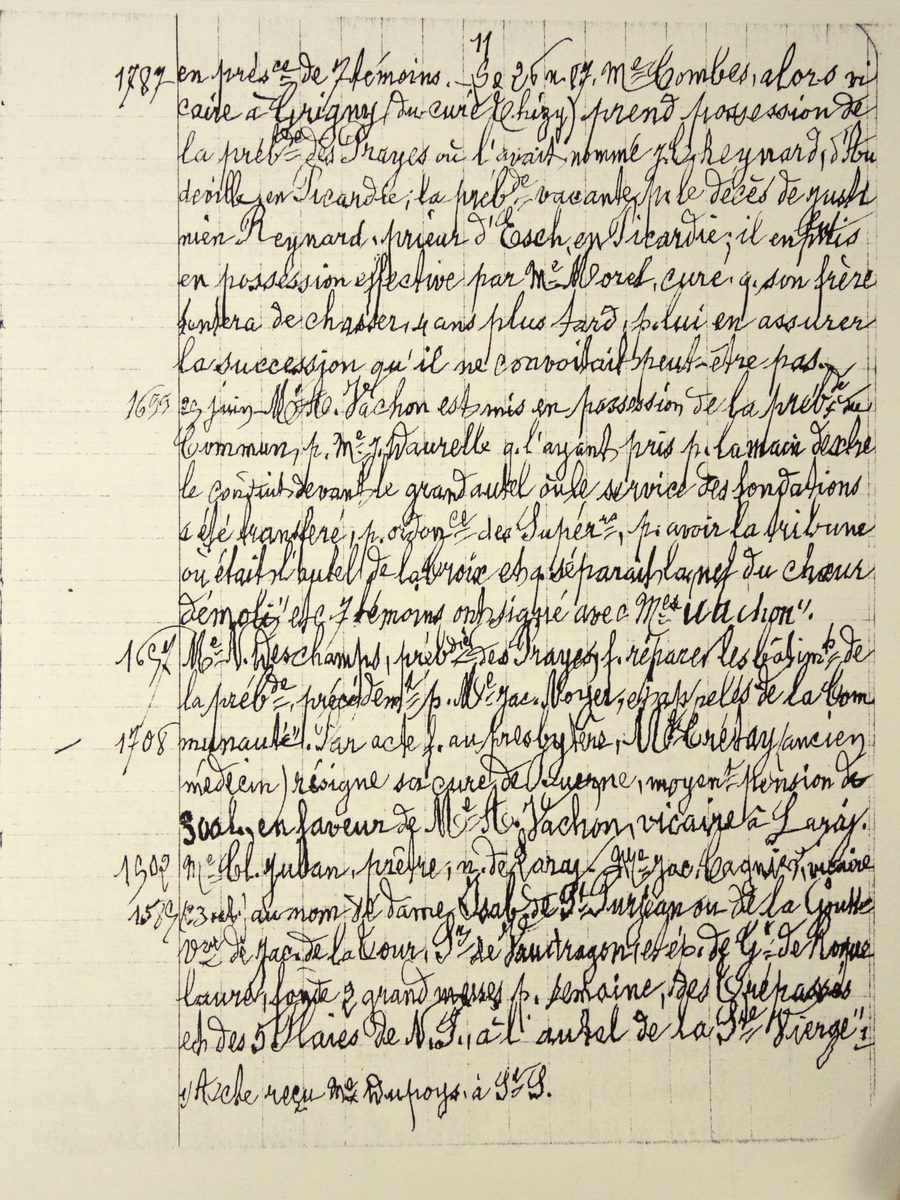 11
1787 en présce de 7 témoins. Le 26 n. 87. Me Combes, alors vi
caire à Grigny (du curé Chizy) prend possession de
la prébde des Prayes où l'avait nommé J. Reynard, d'
deville en Picardie, la prébde vacante p. le décès de Justi
nien Reynard, prieur d'Esch en Picardie; il en fut mis
en possession effective par Me Morel, curé, q. son frère
tentera de chasser, 4 ans plus tard, p. lui en assurer
la succession qu'il ne convoitait peut-être pas.
29 juin Me A. Vachon est mis en possession de la prébde du
Commun, p. Me J. Daurelle q. l'ayant pris p. la main dextre
le conduit devant le grand autel où le service des fondations
a été transféré, p. ordonce des Supérrs, p. avoir la tribune
où était l'autel de la Croix et q. séparait la nef du chœur
démoli" etc. 7 témoins ont signé avec Mes Vachon".
1697 Me N. Deschamps, prébdier des Prayes, f. réparer les bâtimts de
la prébde, précédemt p. Me Jac. Noyer, et appelés de la Com
1708 munauté". Par acte f. au presbytère, Me Crétay (ancien
médecin) résigne sa cure de Luerne, moyent pension de
300 l. en faveur de Me A. Vachon, vicaire à Laray.
1502 Me Cl. Juban, prêtre, n. de Laray. Me Jac. Cagniet, vicaire
au nom de dame Isab. de St Purgean ou de la Goutte
Vve de Jac. de la Tour, Sr de Vaudragon, et ex. de Gr de Roque
laure, fonde 2 grand messes p. semaine, des Trépassés
et des 5 Plaies de N. S., à l'autel de la Ste Vierge" 1
1) Acte reçu Me Dupoys. à St S.